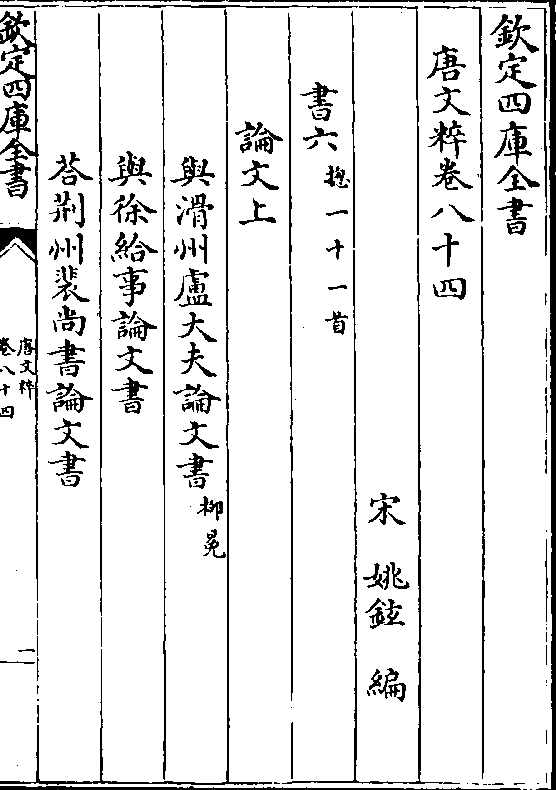 欽定四庫全書
唐文粹卷八十四
宋　姚鉉　編
書六摠一十一首
論文上
與滑州盧大夫論文書柳冕
與徐給事論文書
荅荆州裴尚書論文書
欽定四庫全書
唐文粹
卷八十四
一